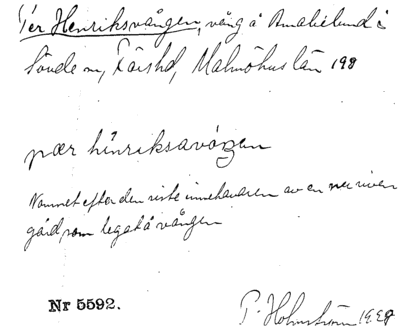 Per Henriksvången, vång å Amalielund i
Sövde sn, Färshd, Malmöhus län 198
pær hinriksavóŋen
Namnet efter den siste innehavaren av en nu riven
gård, som legat å vången
Nr 5592.
P. Holmström 19.28